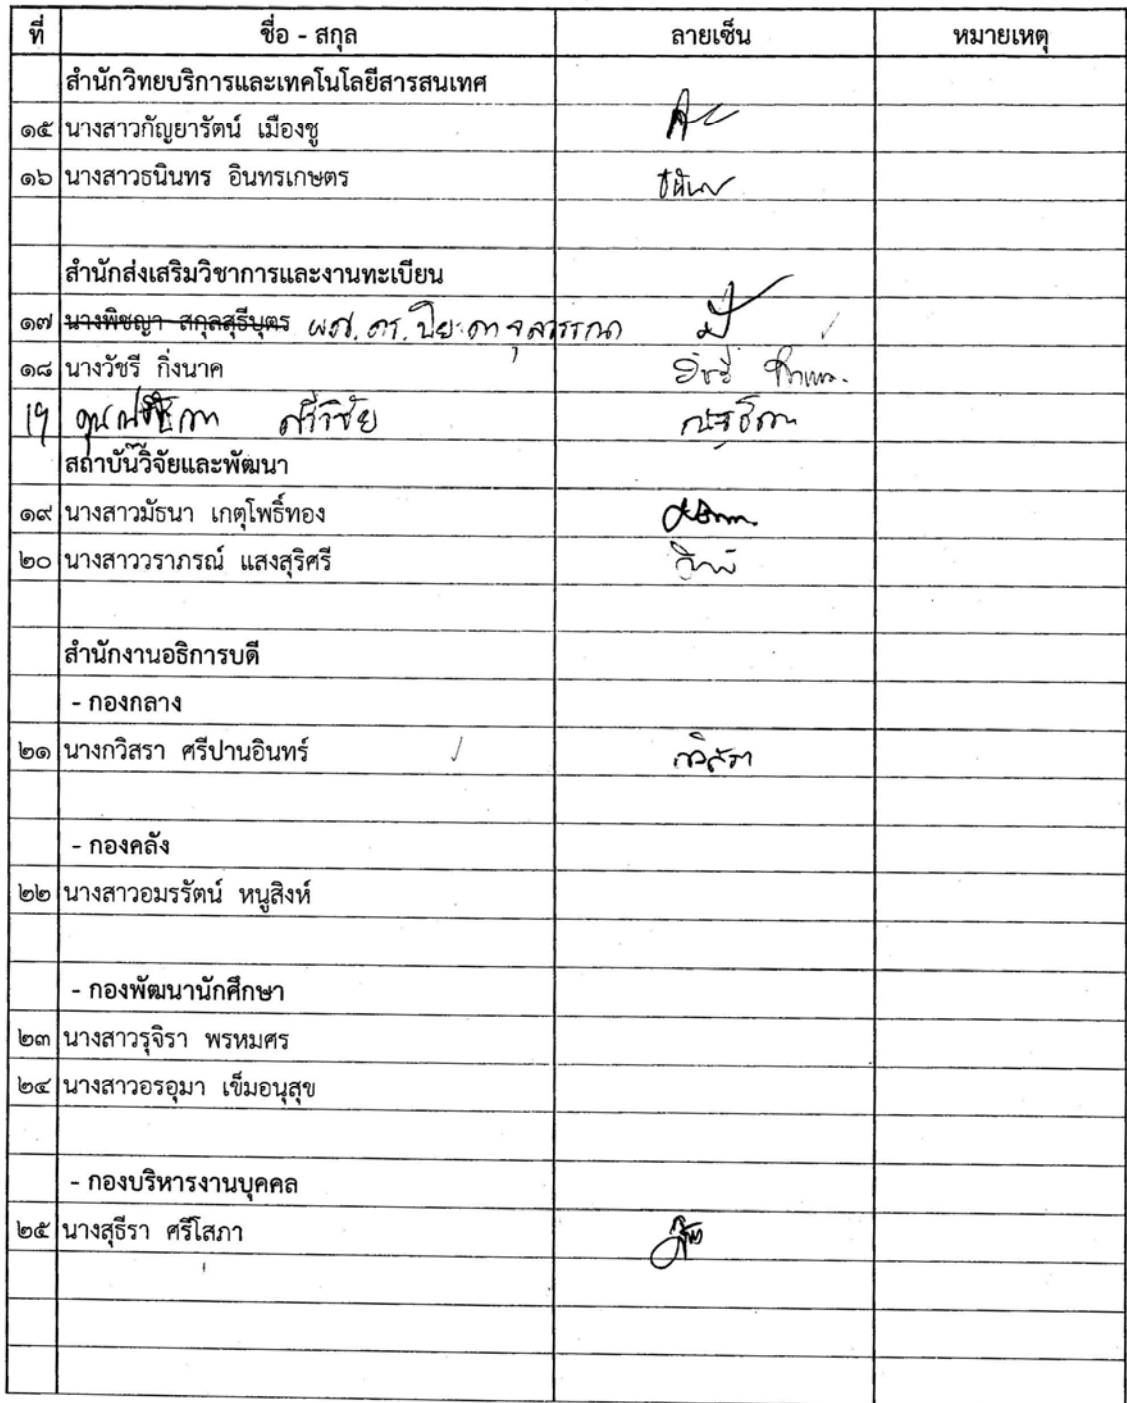 ที่ ชื่อ - สกุล ลายเซ็น หมายเหตุ
สำนักวิทยบริการและเทคโนโลยีสารสนเทศ
๑๕ นางสาวกัญยารัตน์ เมืองชู
๑๖ นางสาวธนินทร อินทรเกษตร
สำนักส่งเสริมวิชาการและงานทะเบียน
๑๗ นางพิชญา สกุลสุธีบุตร ผศ. ดร. ปิยะดา
๑๘ นางวัชรี กิ่งนาค
19 ศรีวิชัย
สถาบันวิจัยและพัฒนา
๑๙ นางสาวมัธนา เกตุโพธิ์ทอง
๒๐ นางสาววราภรณ์ แสงสุริศรี
สำนักงานอธิการบดี
- กองกลาง
๒๑ นางกวิสรา ศรีปานอินทร์ กวิสรา
- กองคลัง
๒๒ นางสาวอมรรัตน์ หนูสิงห์
- กองพัฒนานักศึกษา
๒๓ นางสาวรุจิรา พรหมศร
๒๔ นางสาวอรอุมา เข็มอนุสุข
- กองบริหารงานบุคคล
๒๕ นางสุธีรา ศรีโสภา